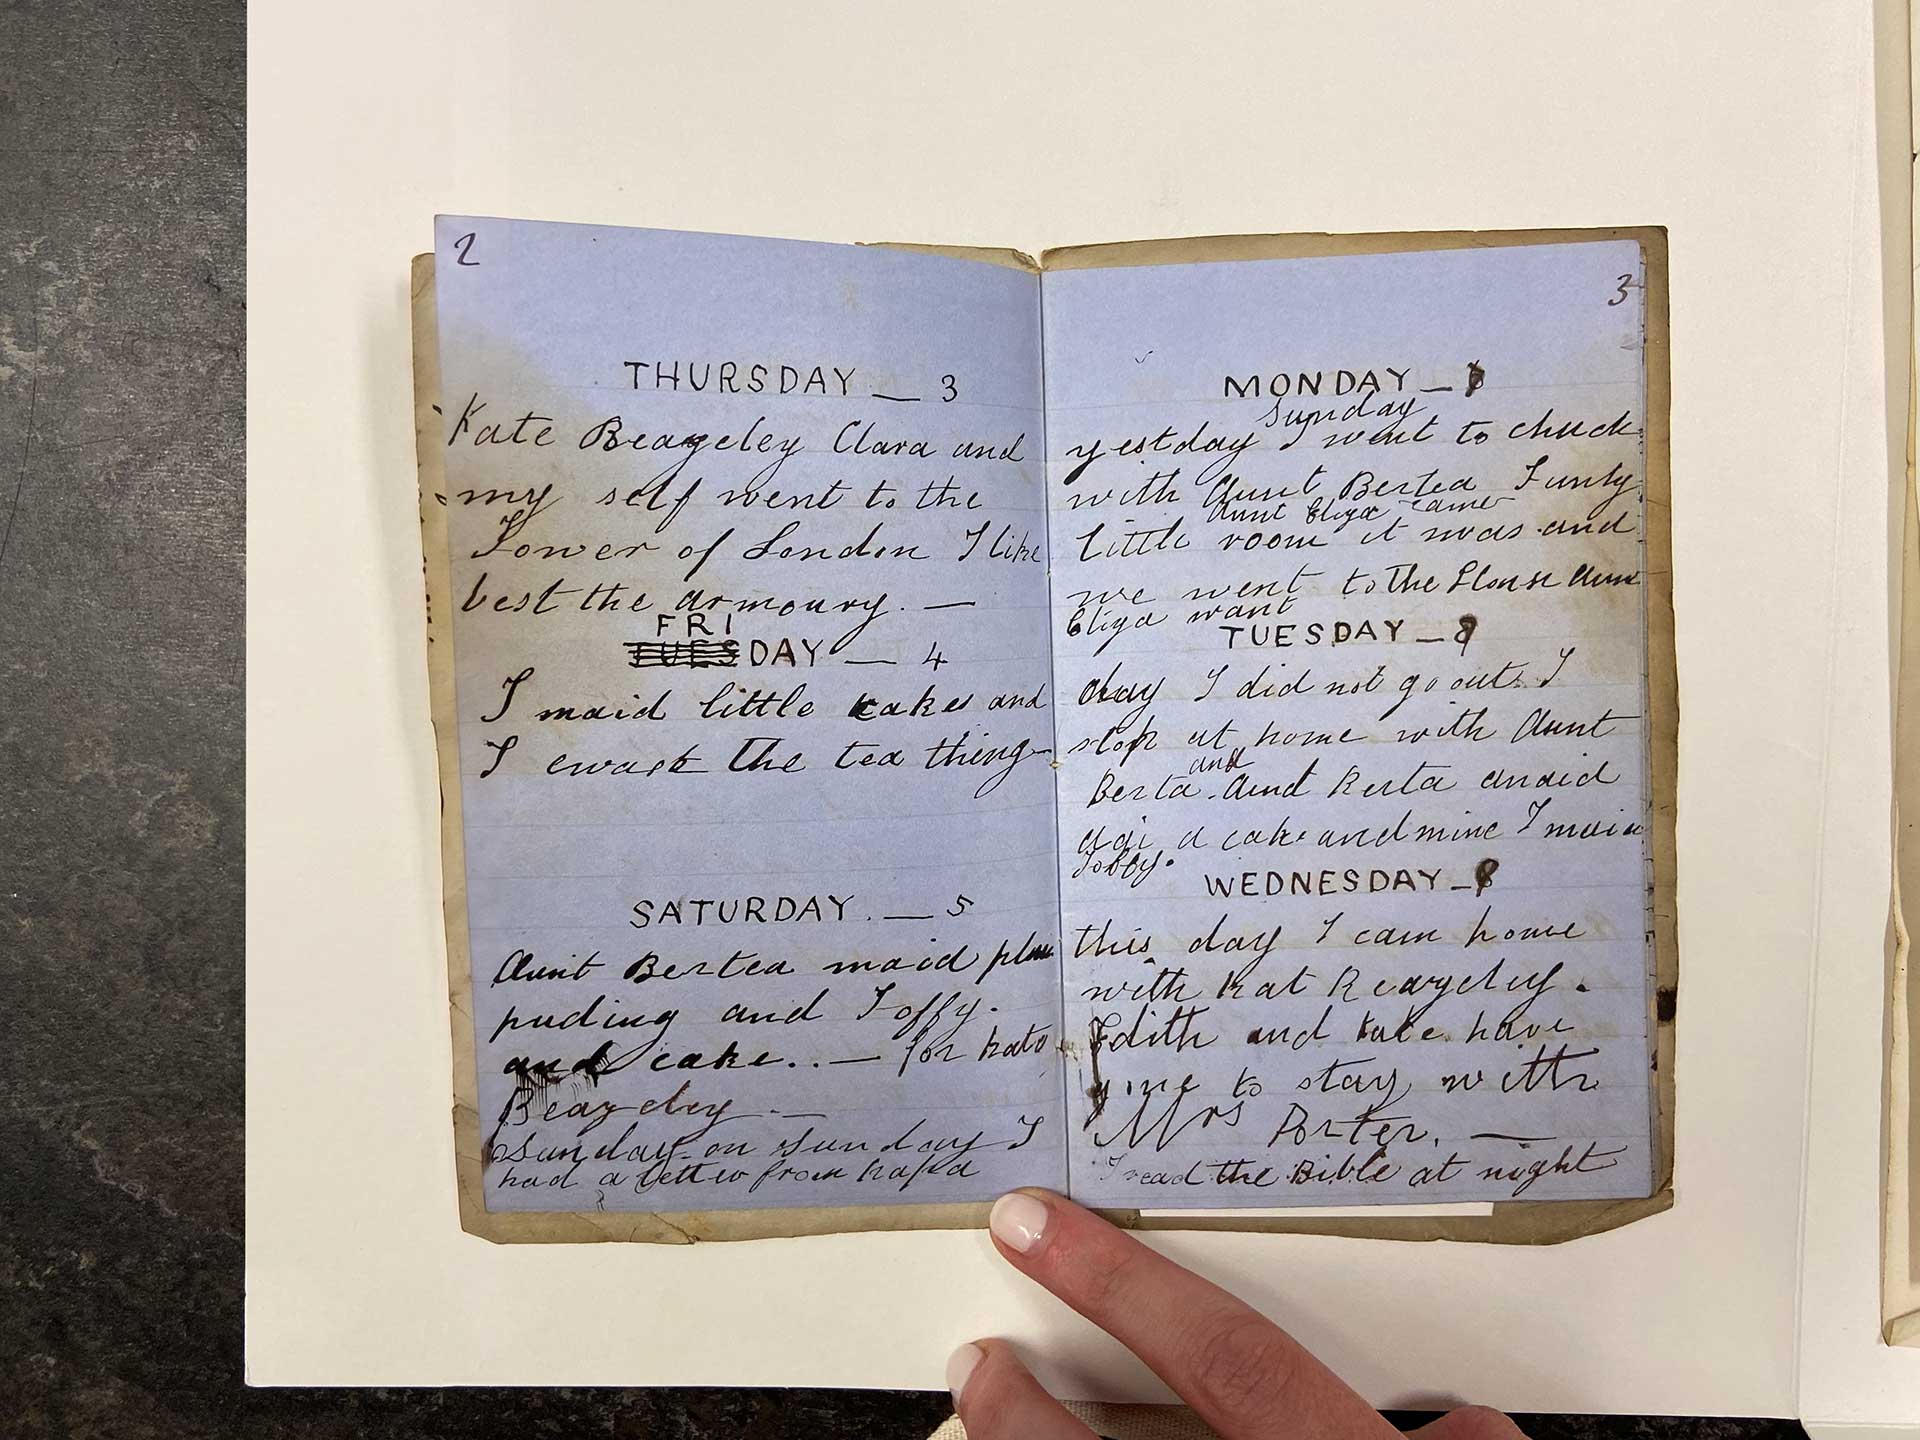 2
THURSDAY __ 3
Kate Beazeley Clara and
my self went to the
Tower of London I like
best the armoury. —
FRI
TUESDAY — 4
I maid little cakes and
I the tea thing
SATURDAY. — 5
Aunt Bertea maid plum
puding and Toffy.
and cake.. — for kate
Beazeley —
Sunday on sunday I
had a letter from papa
3
MONDAY —
Sunday
yestday I went to
with Aunt Bertea Funly
Aunt Eliza came
little room it was and
we went to the House Aunt
Eliza want
TUESDAY —
I did not go out. I
stop at home with Aunt
and
Berta. Aunt Berta maid
a cake and mine I maid
Tobby.
WEDNESDAY —
this day I cam home
with kat Beazeley.
Edith and kate have
to stay with
Mrs Porter. —
I read the Bible at night